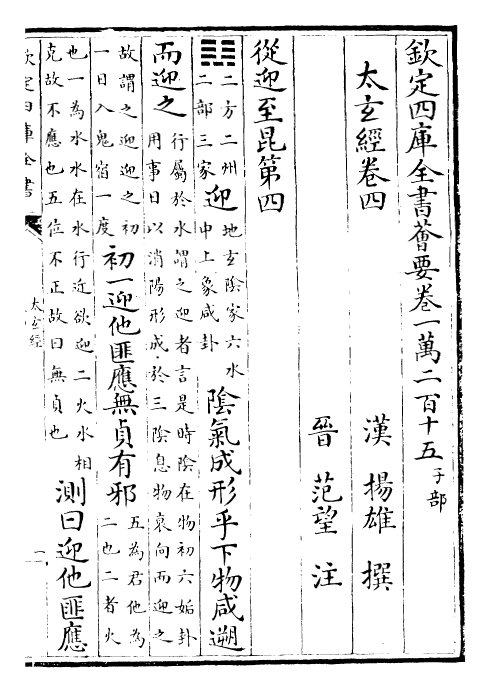 欽定四庫全書薈要卷一萬二百十五 子部
太玄經卷四 漢 揚雄 撰
晉 范望 注
從迎至昆第四
二方二州二部三家 迎 地玄陰家六水中上象咸卦 陰氣成形乎下物咸遡
而迎之 行屬於水謂之迎者言是時陰在物初六姤卦用事日以消陽形成於三陰息物衰向而迎之
故謂之迎迎之初一日入鬼宿一度 初一迎他匪應無貞有邪 五為君他為二也二者火
也一為水水在水行近欲迎二火水相克故不應也五位不正故曰無貞也 測曰迎他匪應
欽定四庫全書
太玄經
一